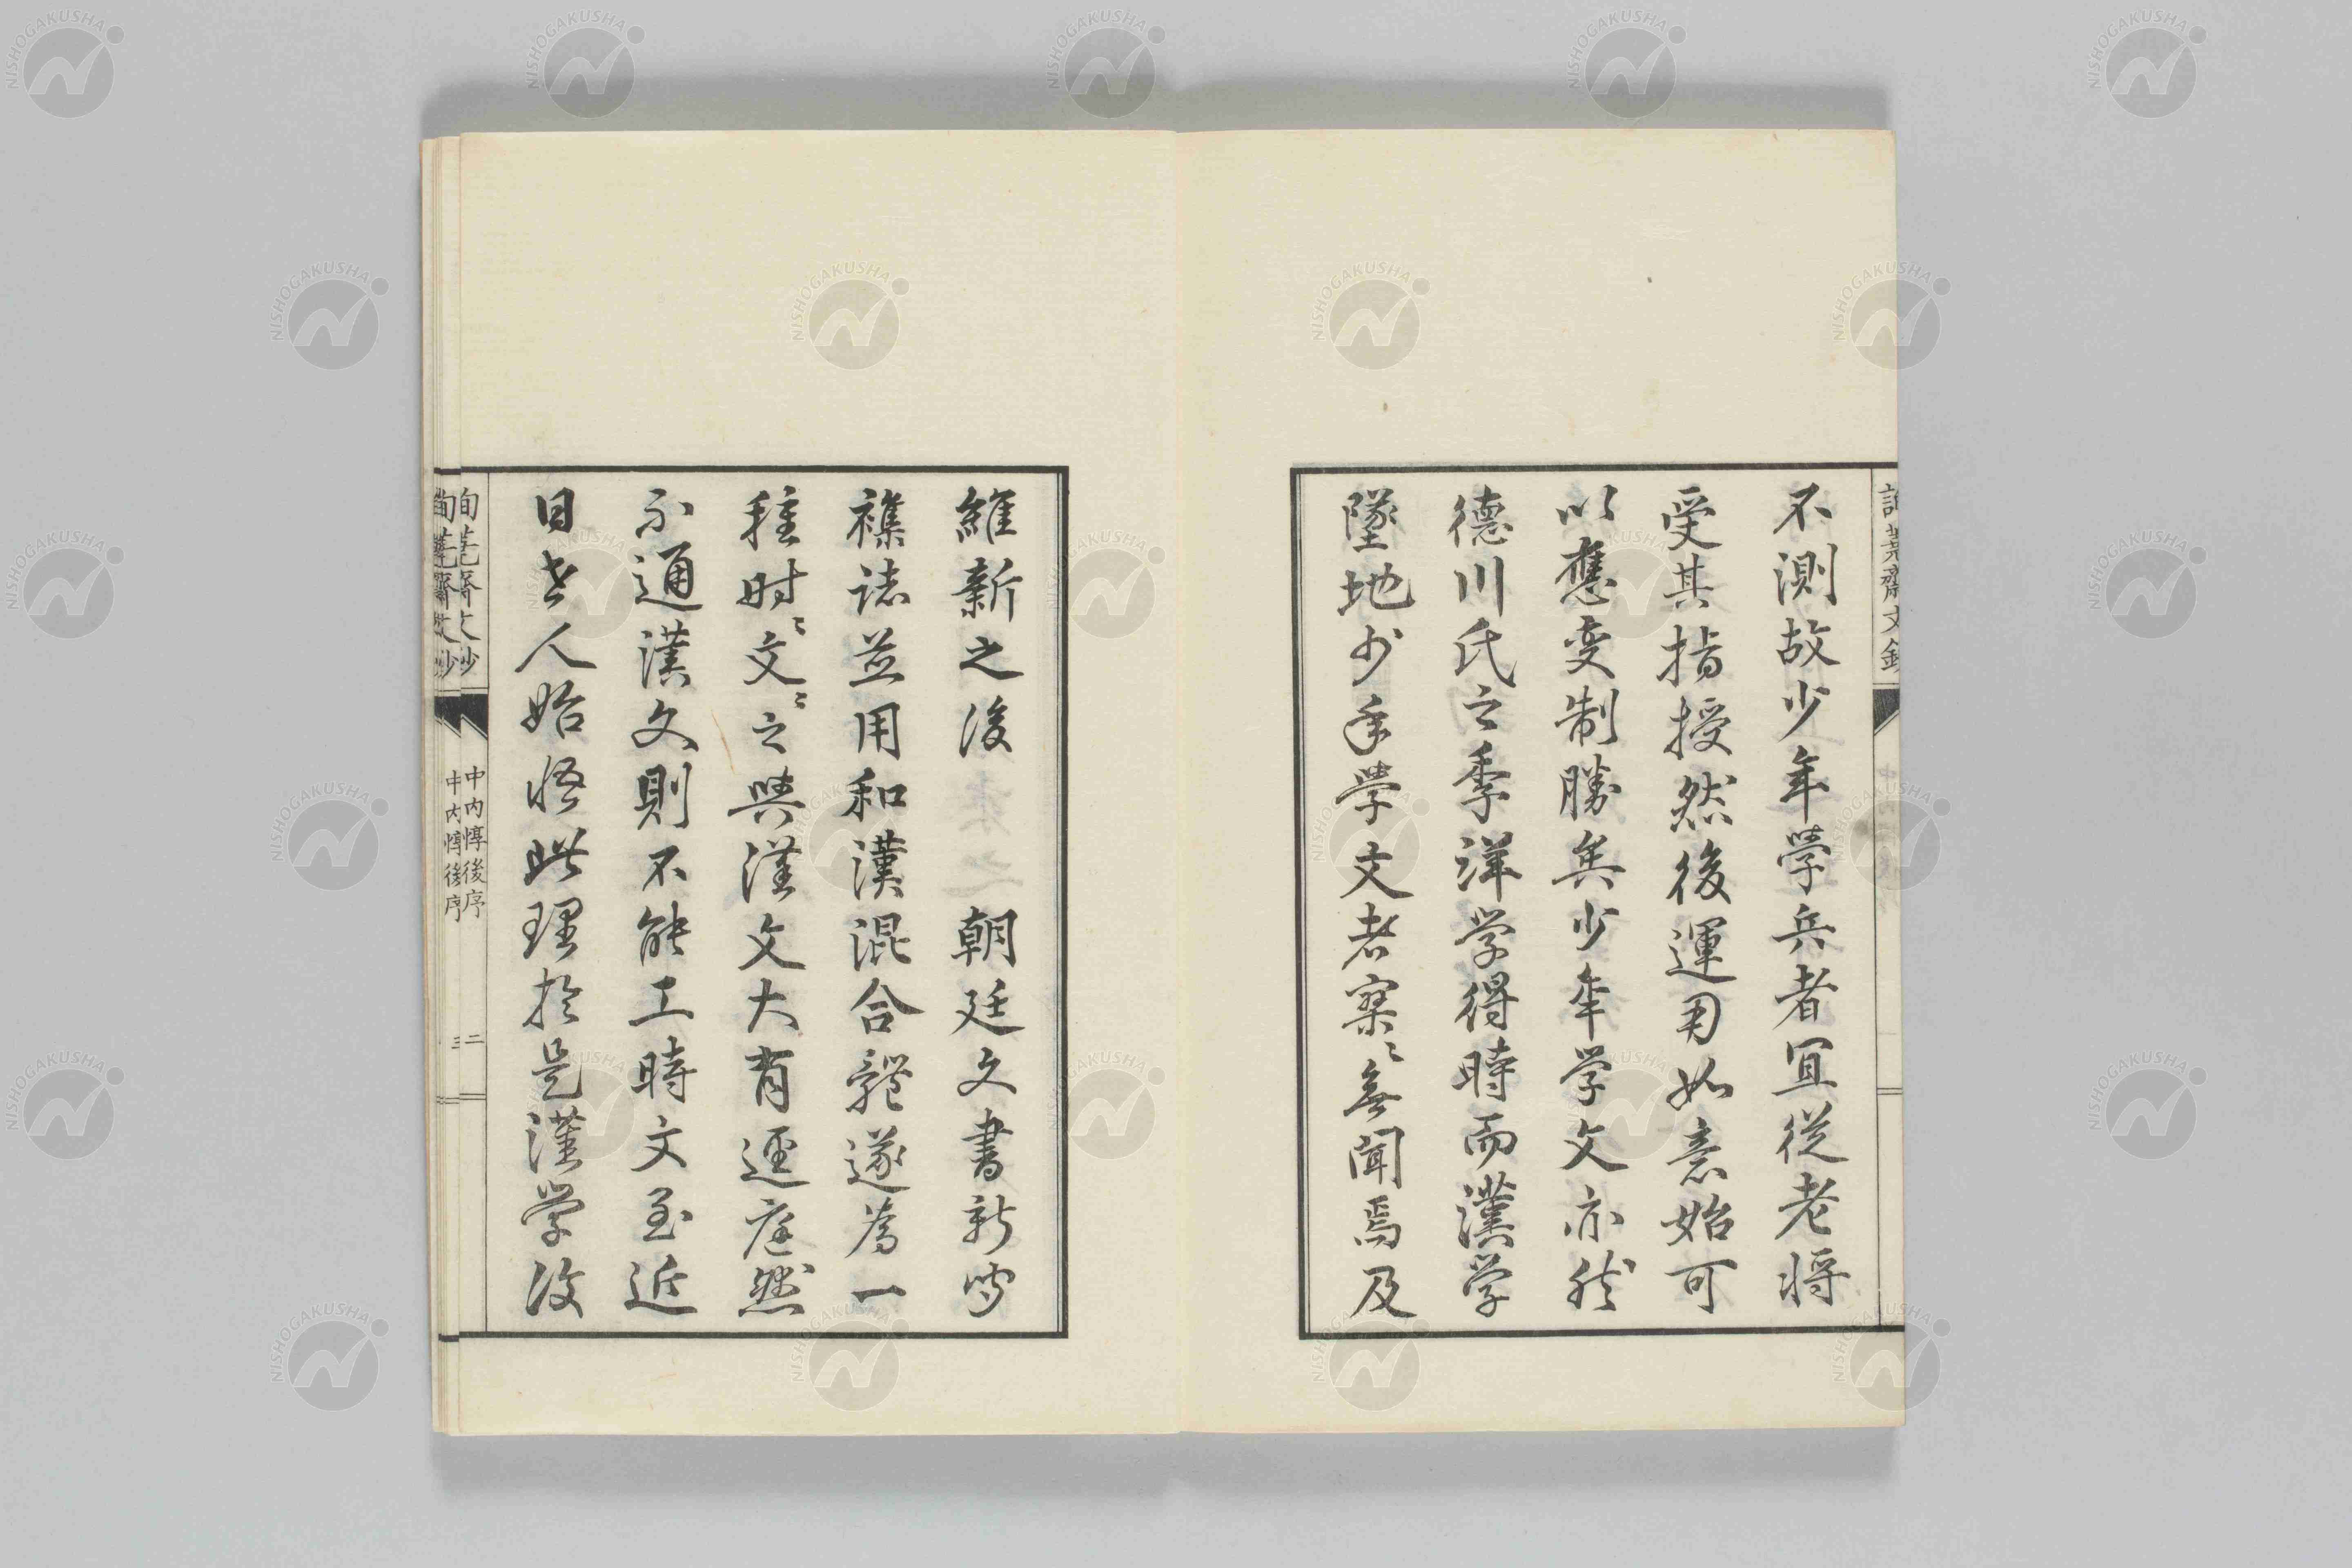 不測故少年學兵者宜從老将
受其指授然後運用如意始可
以應变制勝矣少年学文亦然
德川氏之季洋学得時而漢学
墜地少年學文者寥〻無聞焉及
維新之後　朝廷文書新聞
襍誌並用和漢混合體遂為一
種時〻文〻之與漢文大有逕庭然
不通漢文則不能工時文至近
日世人始悟此理於是漢学復
中内惇後序
二
中内惇後序
三
NISHOGAKUSHA